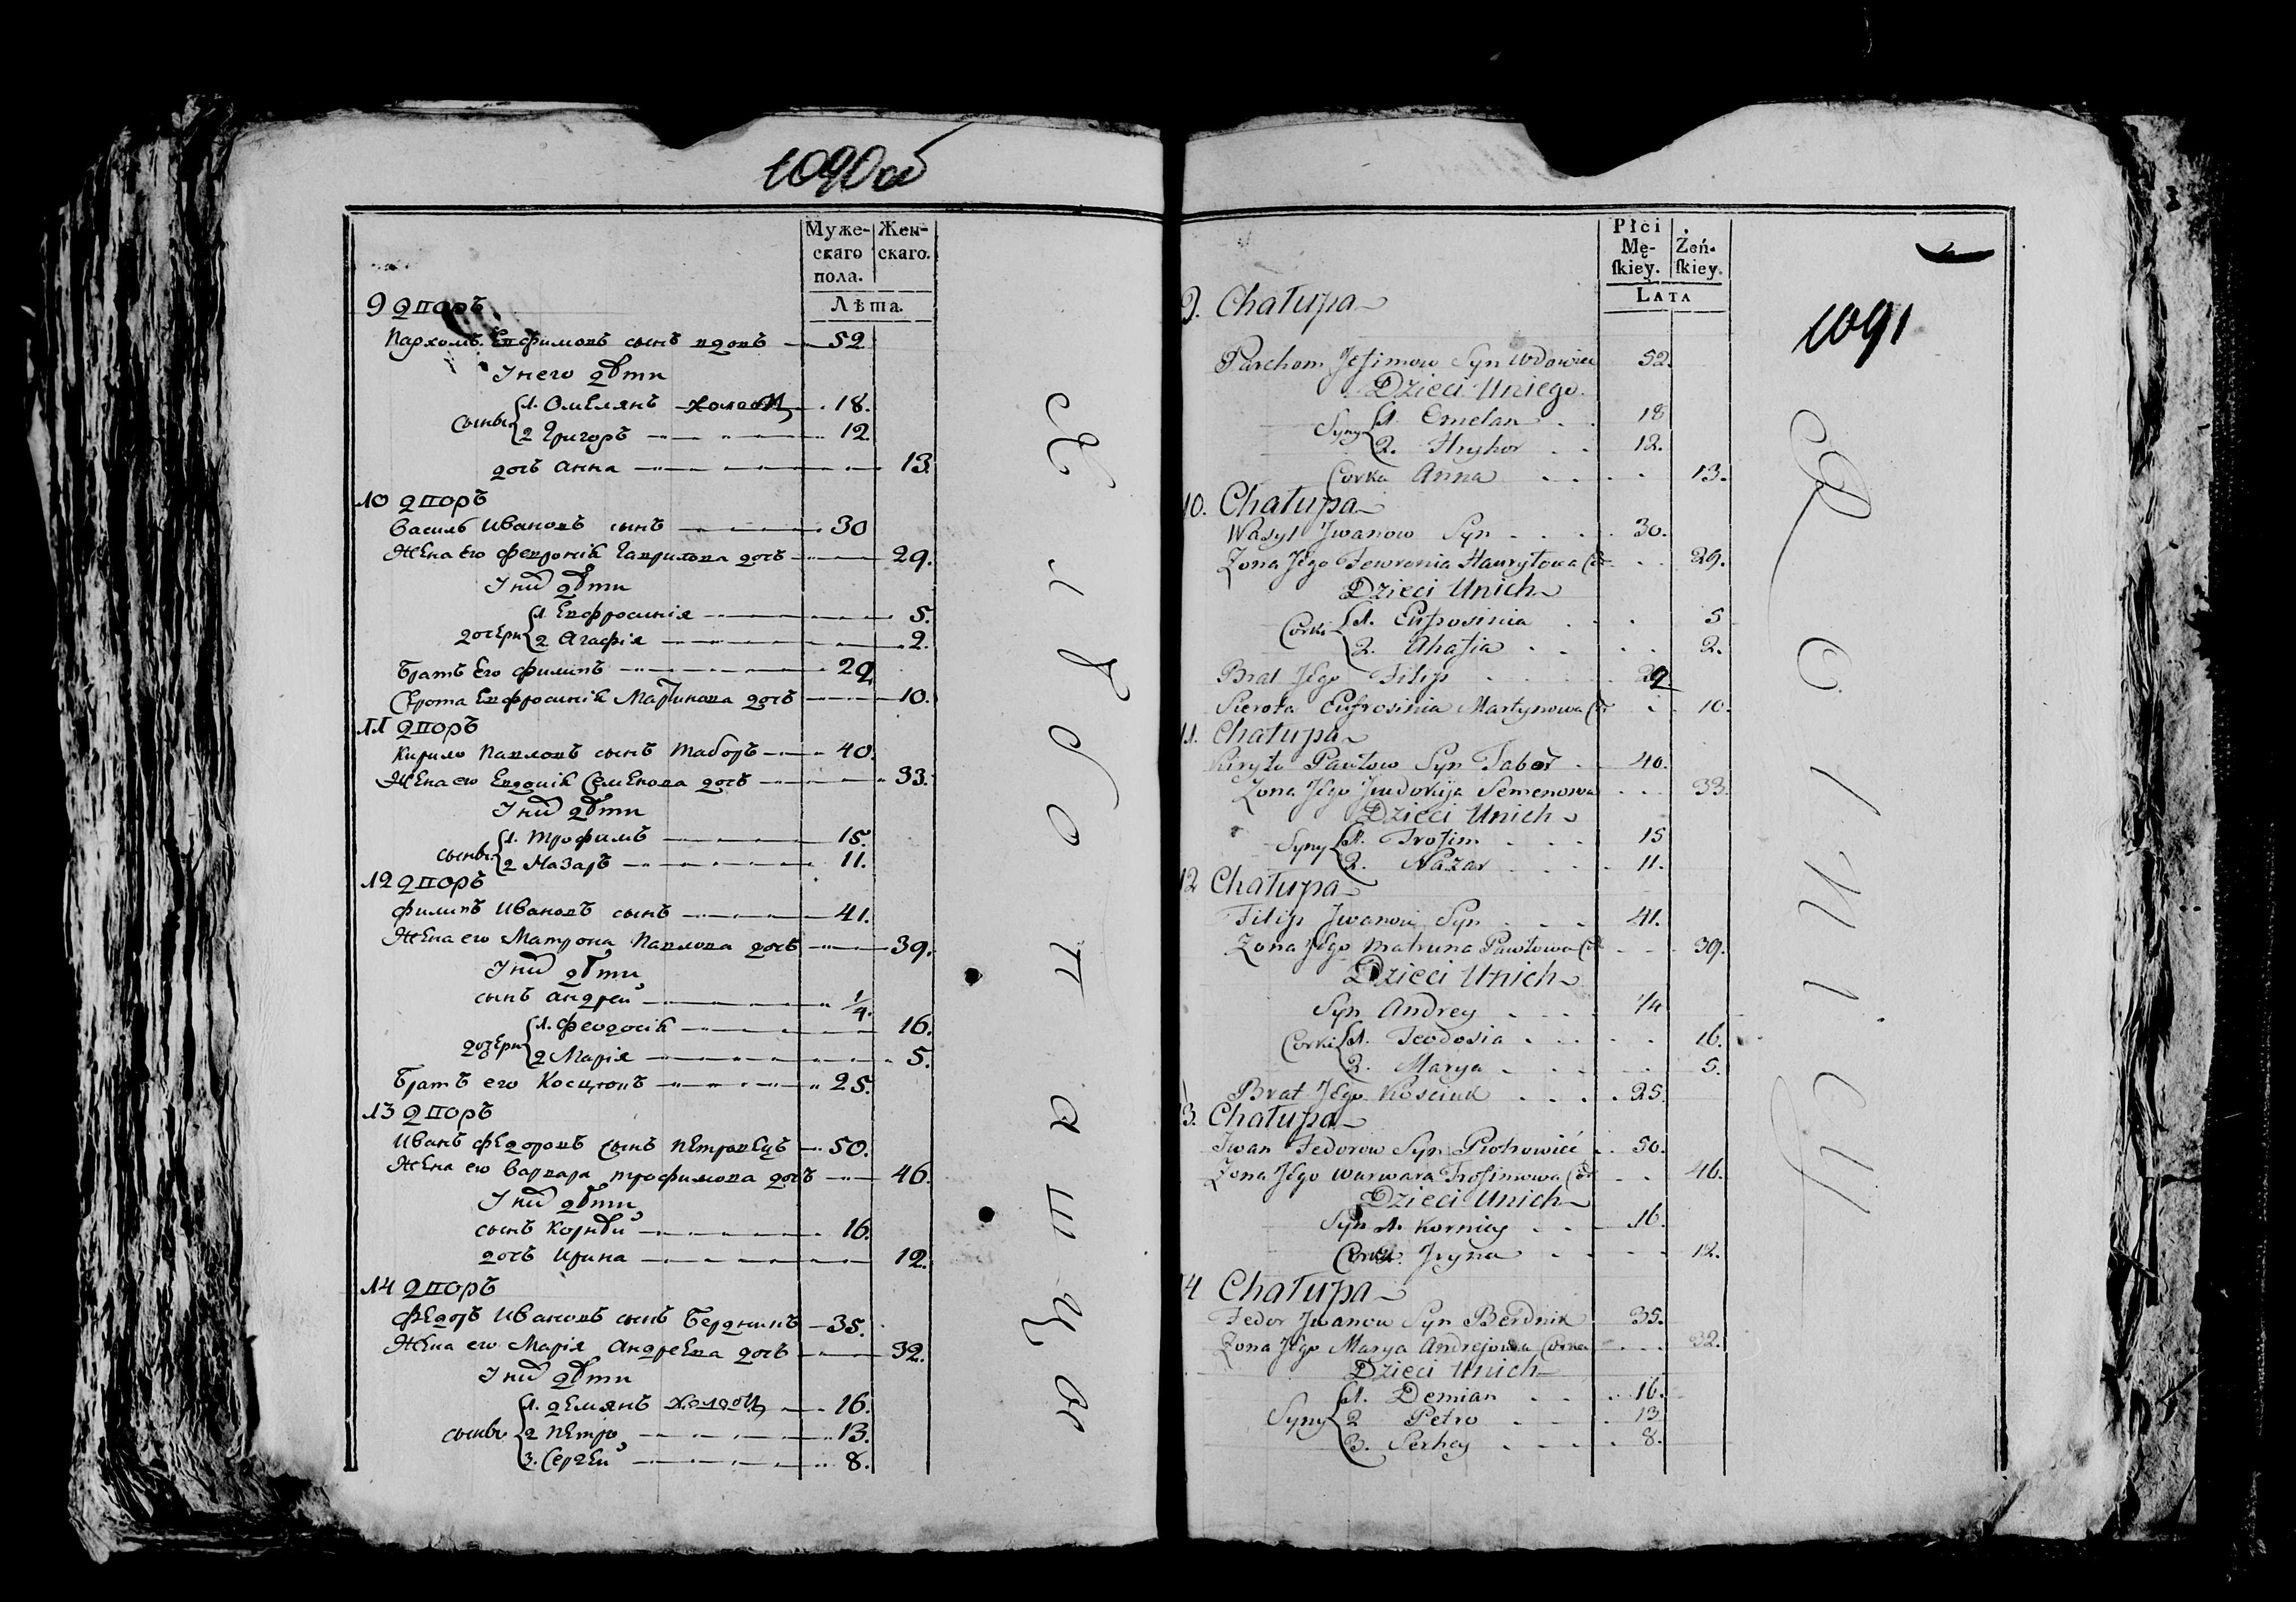 1090 об
Муже-
скаго
пола.
Жен-
скаго.
Лѣта.
9 дворъ
Пархомъ Евфимовъ сынъ вдовъ 52
У него дѣти
сыны 1. Омелянъ холост 18.
2 Григоръ 12
дочь Анна 13.
10 дворъ
Василь Ивановъ сынъ 30
Жена его Февронія Гаврилова дочь 29.
У них дѣти
дочери 1. Евфросинія 5.
2 Агафія 2.
Братъ его Филипъ 29
Сирота Евфросинія Мартинова дочь 10.
11 дворъ
Кирило Павловъ сынъ Таборъ 40.
Жена его Евдокія Семенова дочь 33.
У них дѣти
сыны 1. Трофимъ 15.
2 Назаръ 11.
12 дворъ
Филипъ Ивановъ сынъ 41.
Жена его Матрона Павлова дочь 39.
У них дѣти
сынъ Андрей 1/4.
дочери 1. Феодосія 16.
2 Марія 5.
Братъ его Косцюкъ 25.
13 дворъ
Иванъ Федоровъ сынъ 50.
Жена его Варвара Трофимова дочь 46.
У них дѣти
сынъ Корнѣй 16.
дочь Ирина 12.
14 дворъ
Федоръ Ивановъ сынъ Бердникъ 35.
Жена его Марія Андреева дочь 32.
У них дѣти
сыны 1. Демянъ холост 16.
2 Петро 13.
3. Сергей 8.
Хлѣбопашцы
Płci
Mę-
ſkiey.
Żeń-
ſkiey.
LATA
1091
9. Chałupa
Parchom Jefimow Syn Wdowiec 52.
Dzieci Uniego.
Syny 1. Omelan 18
2. Hryhor 12.
Corka Anna 13.
10. Chałupa
Wasyl Jwanow Syn 30.
Zona Jego Fewronia Hauryłowa Cor 29.
Dzieci Unich
Corki 1. Eufrosinia 5
2. Ahafia 2.
Brat Jego Filip 29
Sierota Eufrosinia Martynowa Cor 10.
11. Chałupa
Kiryło Pawłow Syn Tabor 40.
Zona Jego Jeudokija Semenowa 33.
Dzieci Unich
Syny 1. Trofim 15
2. Nazar 11.
12 Chałupa
Filip Jwanow Syn 41.
Zona Jego Matruna Pawłowa Cor 39.
Dzieci Unich
Syn Andrey 1/4
Corki 1. Teodosia 16.
2. Marya 5.
Brat Jego Kosciuk 25.
13. Chałupa
Jwan Fedorow Syn 50.
Zona Jego Warwara Trofimowa Cor 46.
Dzieci Unich
Syn 1. Korniey 16.
Corka Jryna 12.
14 Chałupa
Fedor Jwanow Syn Berdnik 35.
Zona Jego Marya Andrejowa Corka 32.
Dzieci Unich
Syny 1. Demian 16.
2 Petro 13
3. Serhey 8.
Rolnicy